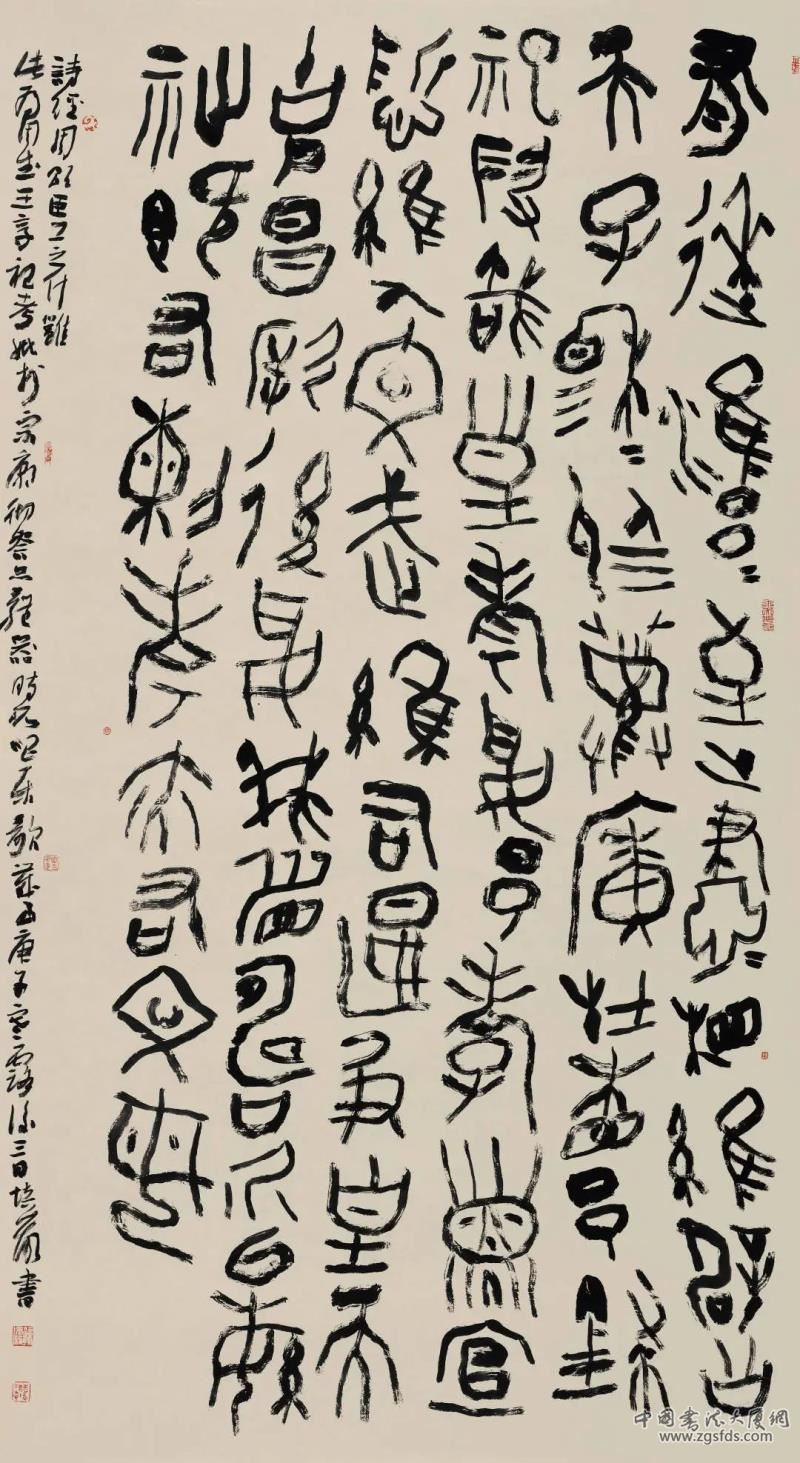 有來雝=至止肅=相維辟公
天子穆=於薦廣牡相予肆
祀假哉皇考綏予孝子宣
哲維人文武維后匽及皇天
克昌厥後綏我眉壽介以繁
祉既右烈考亦右文母
詩經周頌臣工之什雝
此為周武王享祀考妣於宗廟徹祭品禮器時所唱樂歌歲在庚子寒露後三日培書
中國書法大廈網
www.zgsfds.com